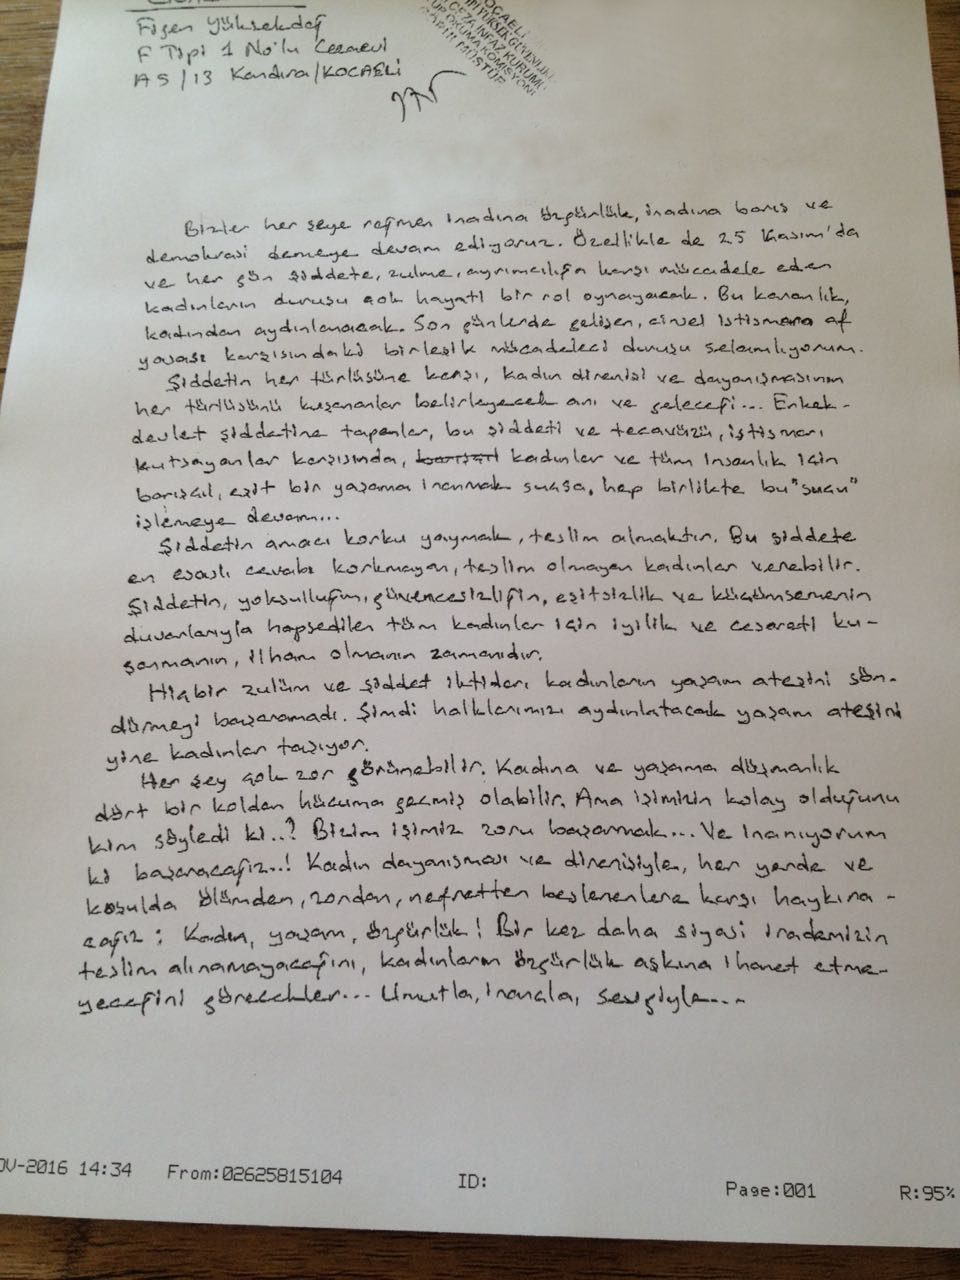 Figen Yüksekdağ
F Tipi 1 No'lu Cezaevi
A5/13 Kandıra/KOCAELİ
KOCAELİ
CEZA İNFAZ KURUMU
OKUMA KOMİSYONU
Bizler her şeye rağmen inadına özgürlük, inadına barış ve
demokrasi demeye devam ediyoruz. Özellikle de 25 Kasım'da
ve her gün şiddete, zulme, ayrımcılığa karşı mücadele eden
kadınların duruşu çok hayati bir rol oynayacak. Bu karanlık,
kadından aydınlanacak. Son günlerde gelişen, cinsel istismara af
yasası karşısındaki birleşik mücadeleci duruşu selamlıyorum.
Şiddetin her türlüsüne karşı, kadın direnişi ve dayanışmasının
her türlüsünü kuşananlar belirleyecek anı ve geleceği... Erkek-
devlet şiddetine tapanlar, bu şiddeti ve tecavüzü, istismarı
kutsayanlar karşısında, barışçıl kadınlar ve tüm insanlık için
barışçıl, eşit bir yaşama inanmak suçsa, hep birlikte bu "suçu"
işlemeye devam...
Şiddetin amacı korku yaymak, teslim almaktır. Bu şiddete
en esaslı cevabı korkmayan, teslim olmayan kadınlar verebilir.
Şiddetin, yoksulluğun, güvencesizliğin, eşitsizlik ve küçümsemenin
duvarlarıyla hapsedilen tüm kadınlar için iyilik ve cesareti ku-
şanmanın, ilham olmanın zamanıdır.
Hiçbir zulüm ve şiddet iktidarı kadınların yaşam ateşini sön-
dürmeyi başaramadı. Şimdi halklarımızı aydınlatacak yaşam ateşini
yine kadınlar taşıyor.
Her şey çok zor görünebilir. Kadına ve yaşama düşmanlık
dört bir koldan hücuma geçmiş olabilir. Ama işimizin kolay olduğunu
kim söyledi ki..? Bizim işimiz zoru başarmak... Ve inanıyorum
ki başaracağız..! Kadın dayanışması ve direnişiyle, her yerde ve
koşulda ölümden, zordan, nefretten beslenenlere karşı haykıra-
cağız: Kadın, yaşam, özgürlük! Bir kez daha siyasi irademizin
teslim alınamayacağını, kadınların özgürlük aşkına ihanet etme-
yeceğini görecekler... Umutla, inançla, sevgiyle...
OV-2016 14:34 From:02625815104 ID: Page:001 R:95%